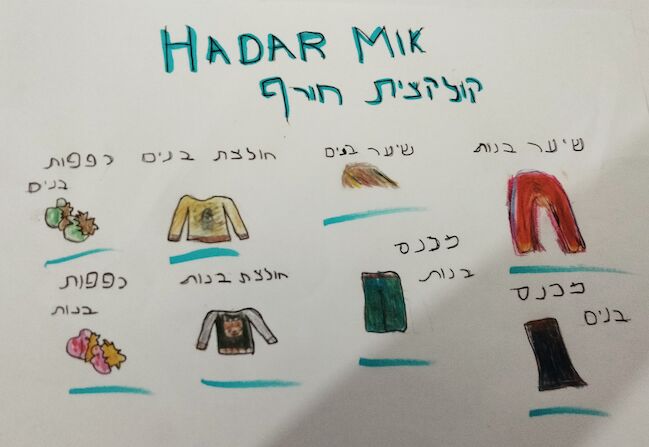 HADAR MIK
קולקצית חורף
שיער בנות
שיער בנים
חולצת בנים
כפפות
בנים
מכנס
בנות
מכנס
בנים
חולצת בנות
כפפות
בנות